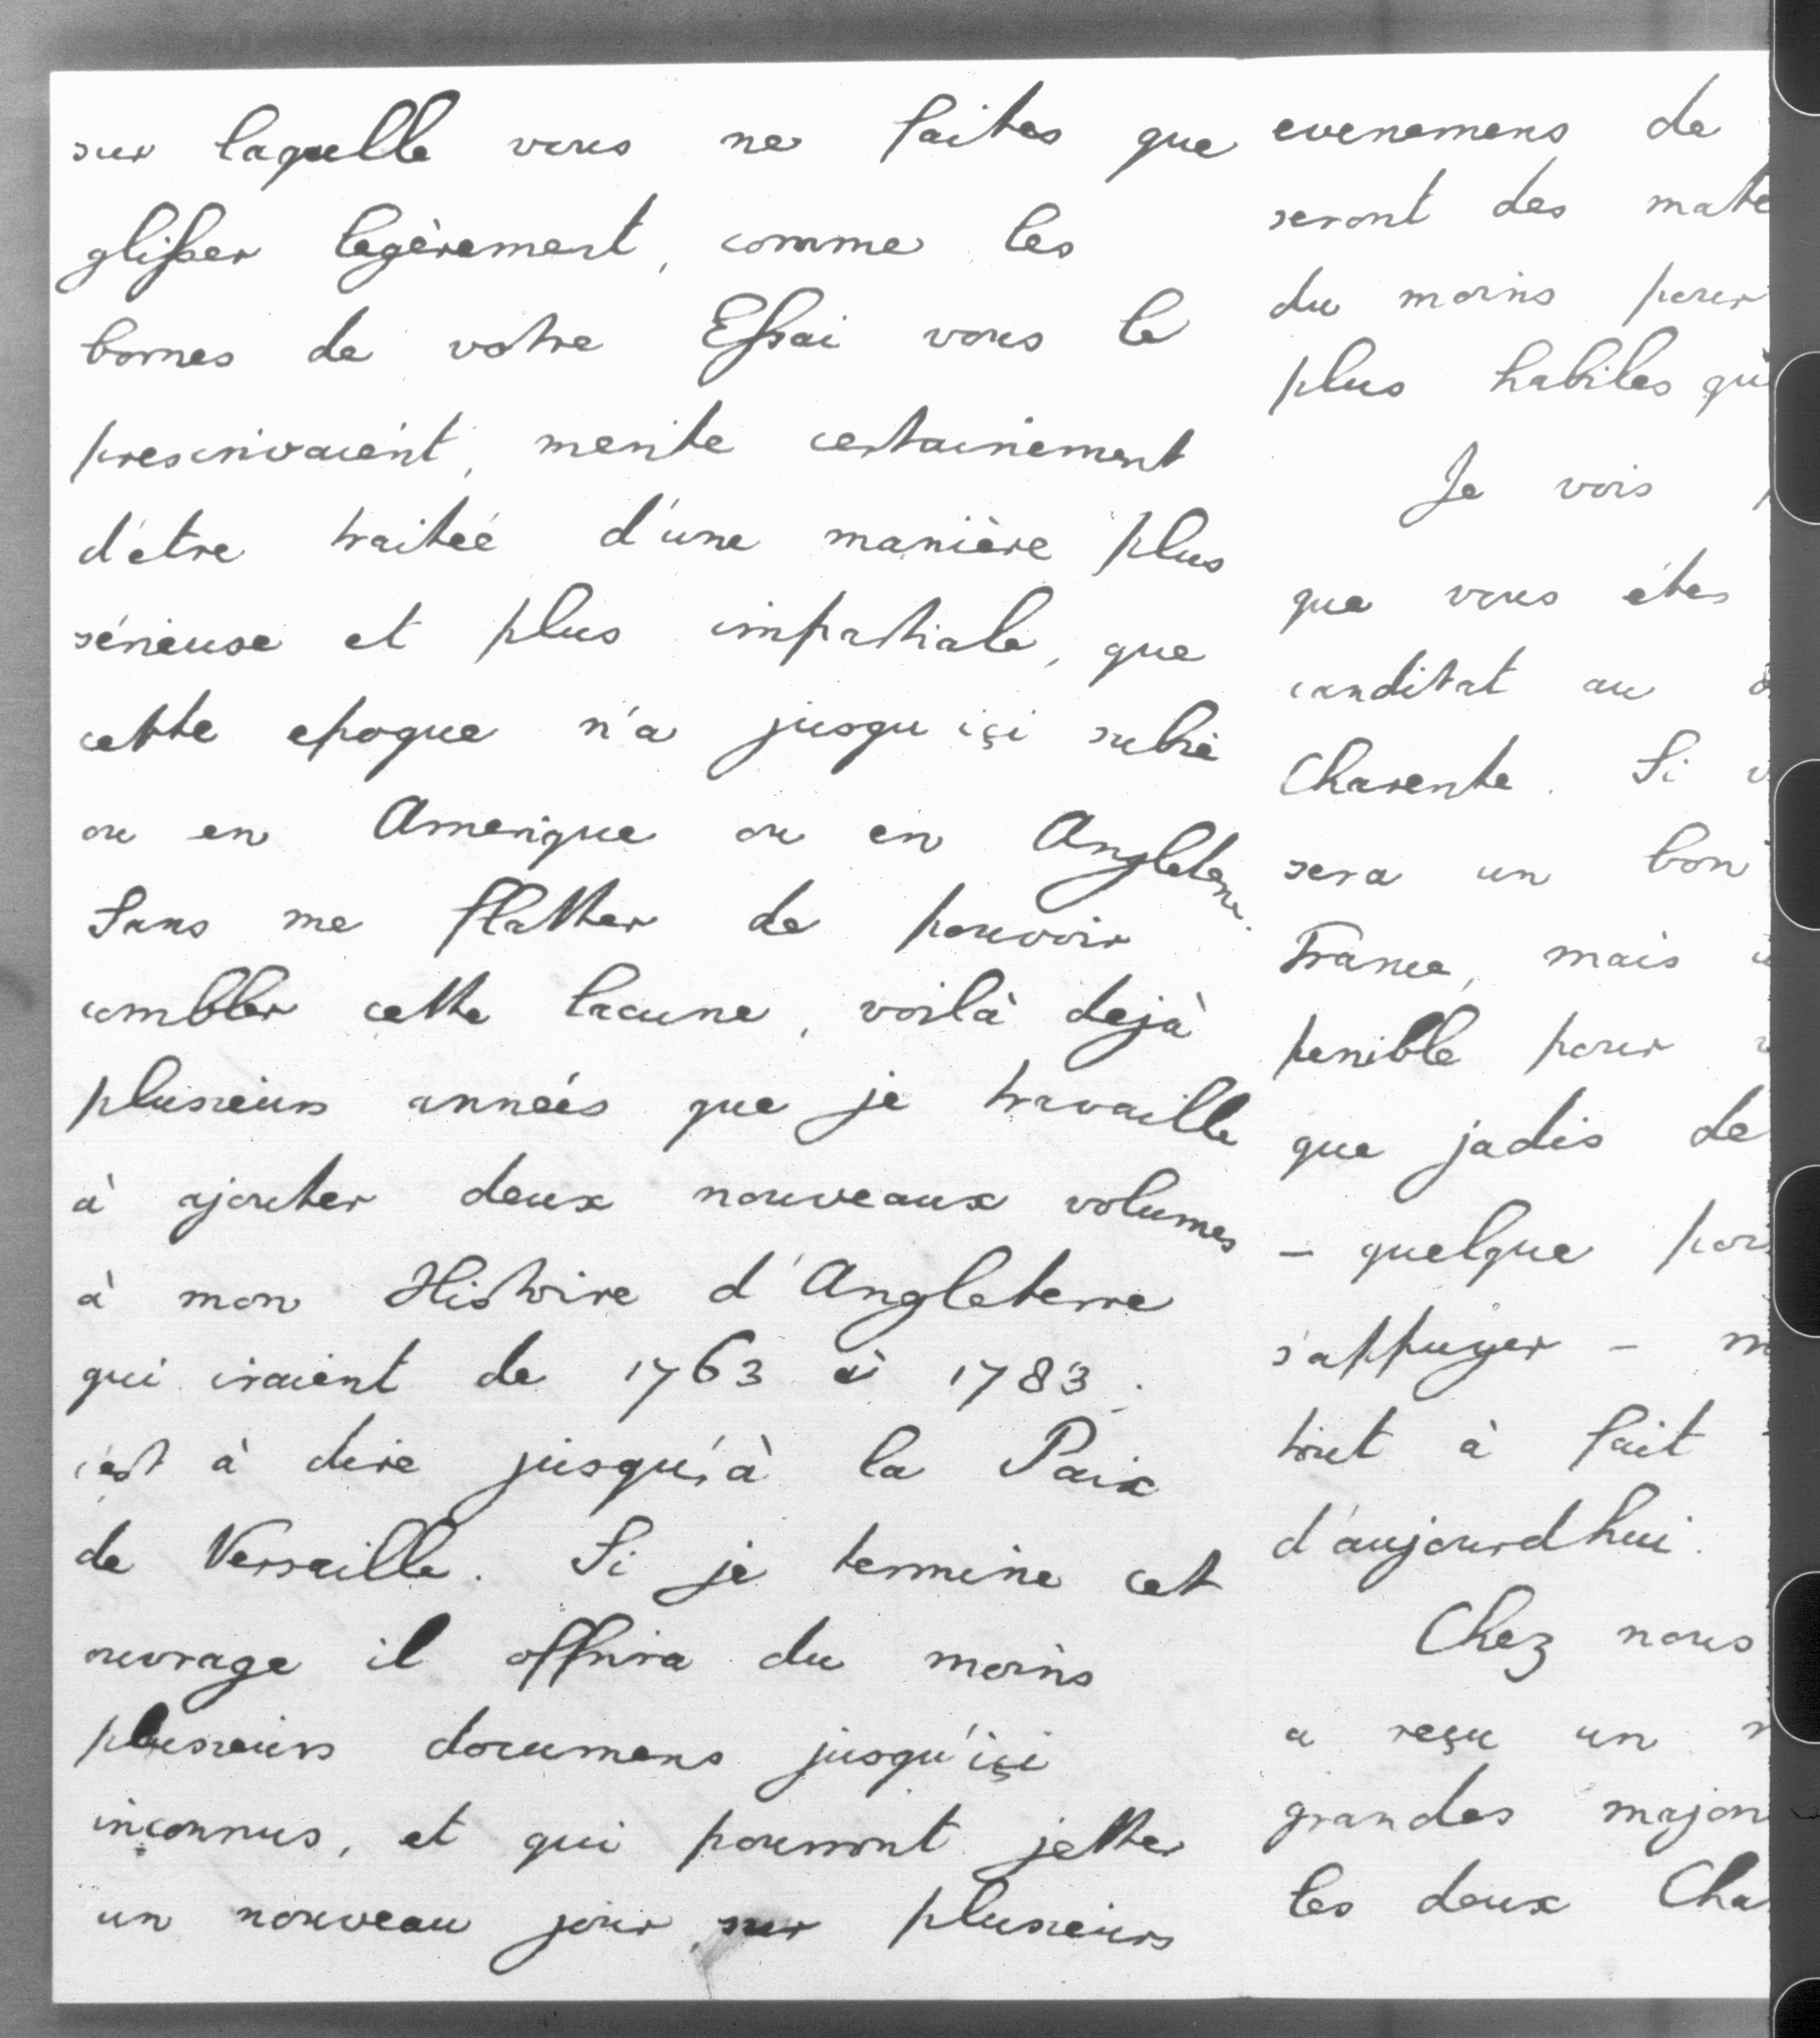 sur laquelle vous ne faites que
glisser legèrement, comme les
bornes de votre Essai vous le
prescrivaient, merite certainement
d'étre traiteé d'une manière plus
sérieuse et plus impartiale, que
cette epoque n'a jusqu içi subie
ou en Amerique ou en Angleterre.
Sans me flatter de pouvoir
combler cette lacune, voilà dejà
plusieurs anneés que je travaille
à ajouter deux nouveaux volumes
à mon Histoire d'Angleterre
qui iraient de 1763 à 1783.
c'est à dire jusqu'à la Paix
de Versaille. Si je termine cet
ouvrage il offrira du moins
plusieurs documens jusqu'içi
inconnus, et qui pourront jetter
un nouveau jour sur plusieurs
evenemens de
seront des mate
du moins pour
plus habiles qu
Je vois
que vous étes
canditat au
Charente. Si
sera un bon
France, mais
penible pour
que jadis de
– quelque
s'appuyer –
tout à fait
d'aujourdhui.
Chez nous
a reçu un
grandes major
les deux Cha